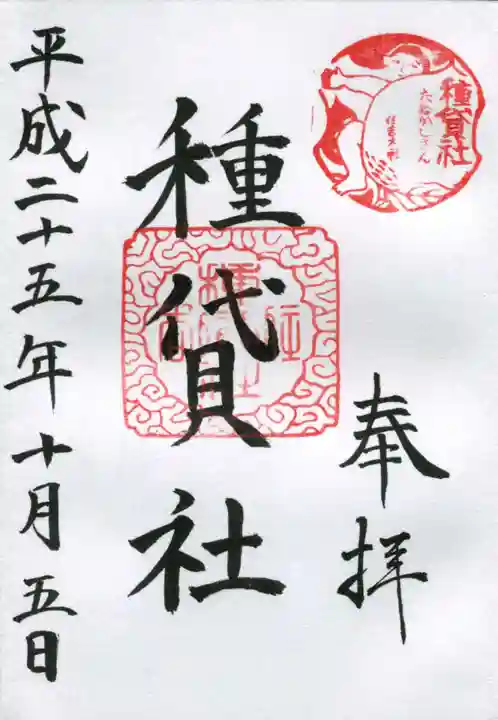 種貸社
おたねかしさん
住吉大社
奉拝
種貸社
平成二十五年十月五日